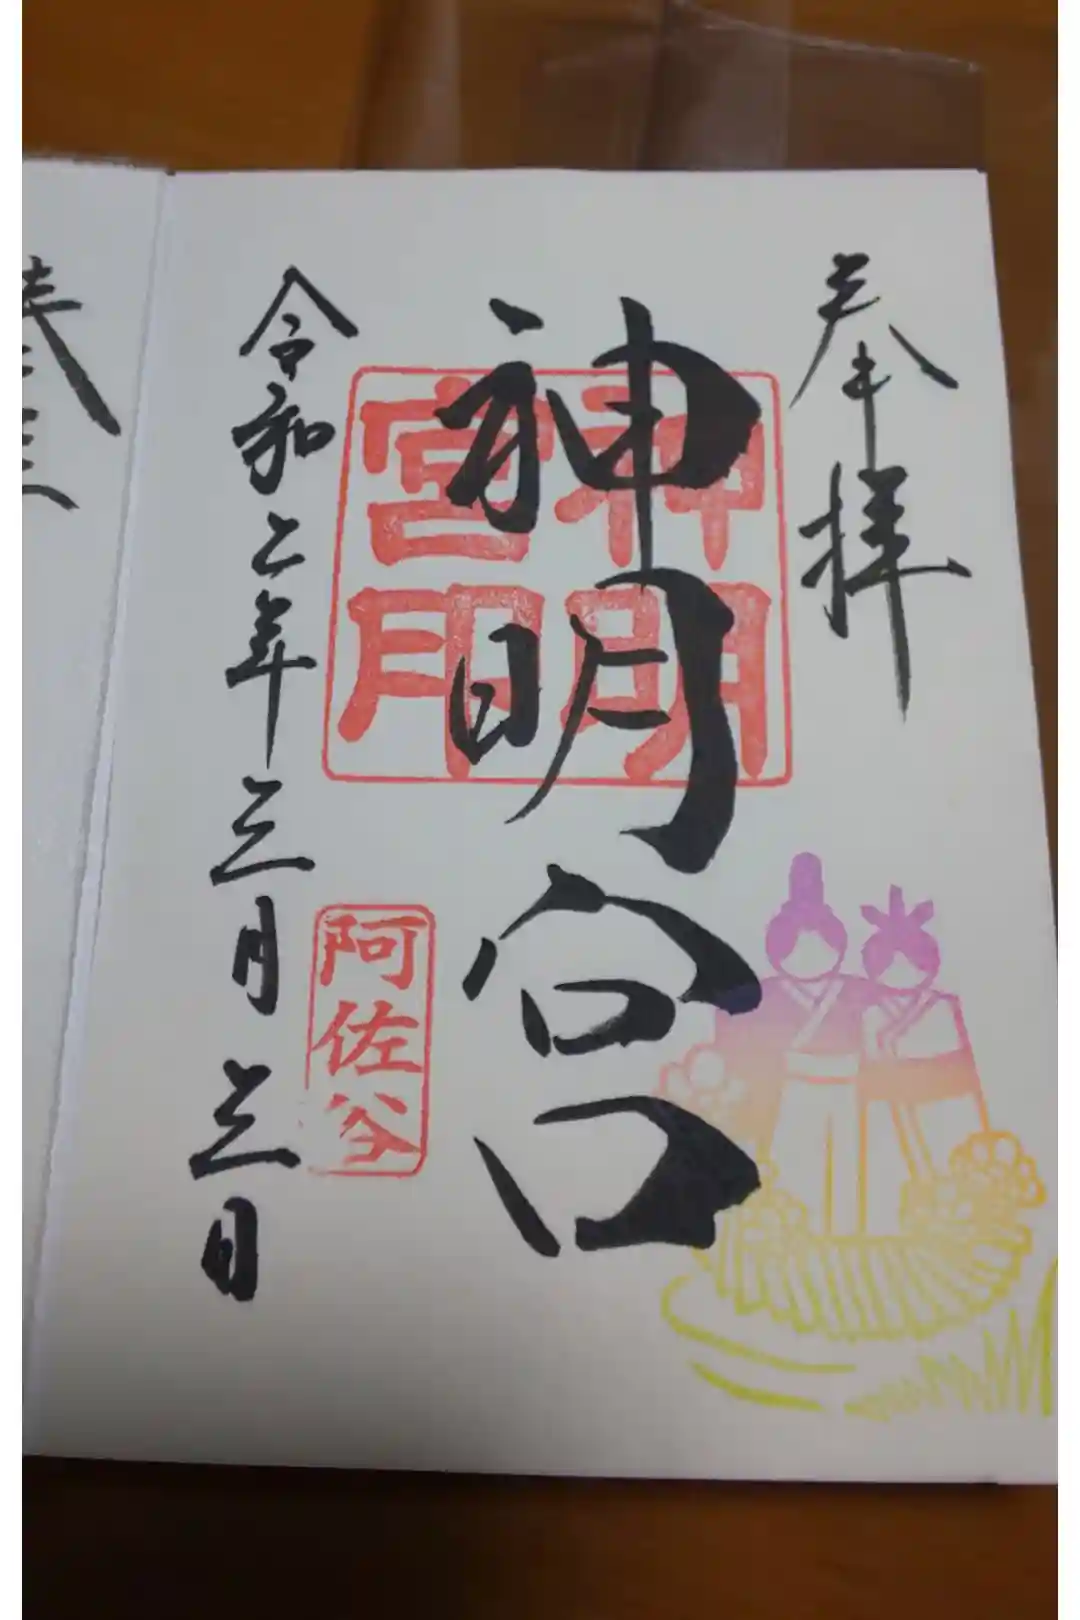 奉拝
神明宮
神明宮印
阿佐谷
令和二年三月三日